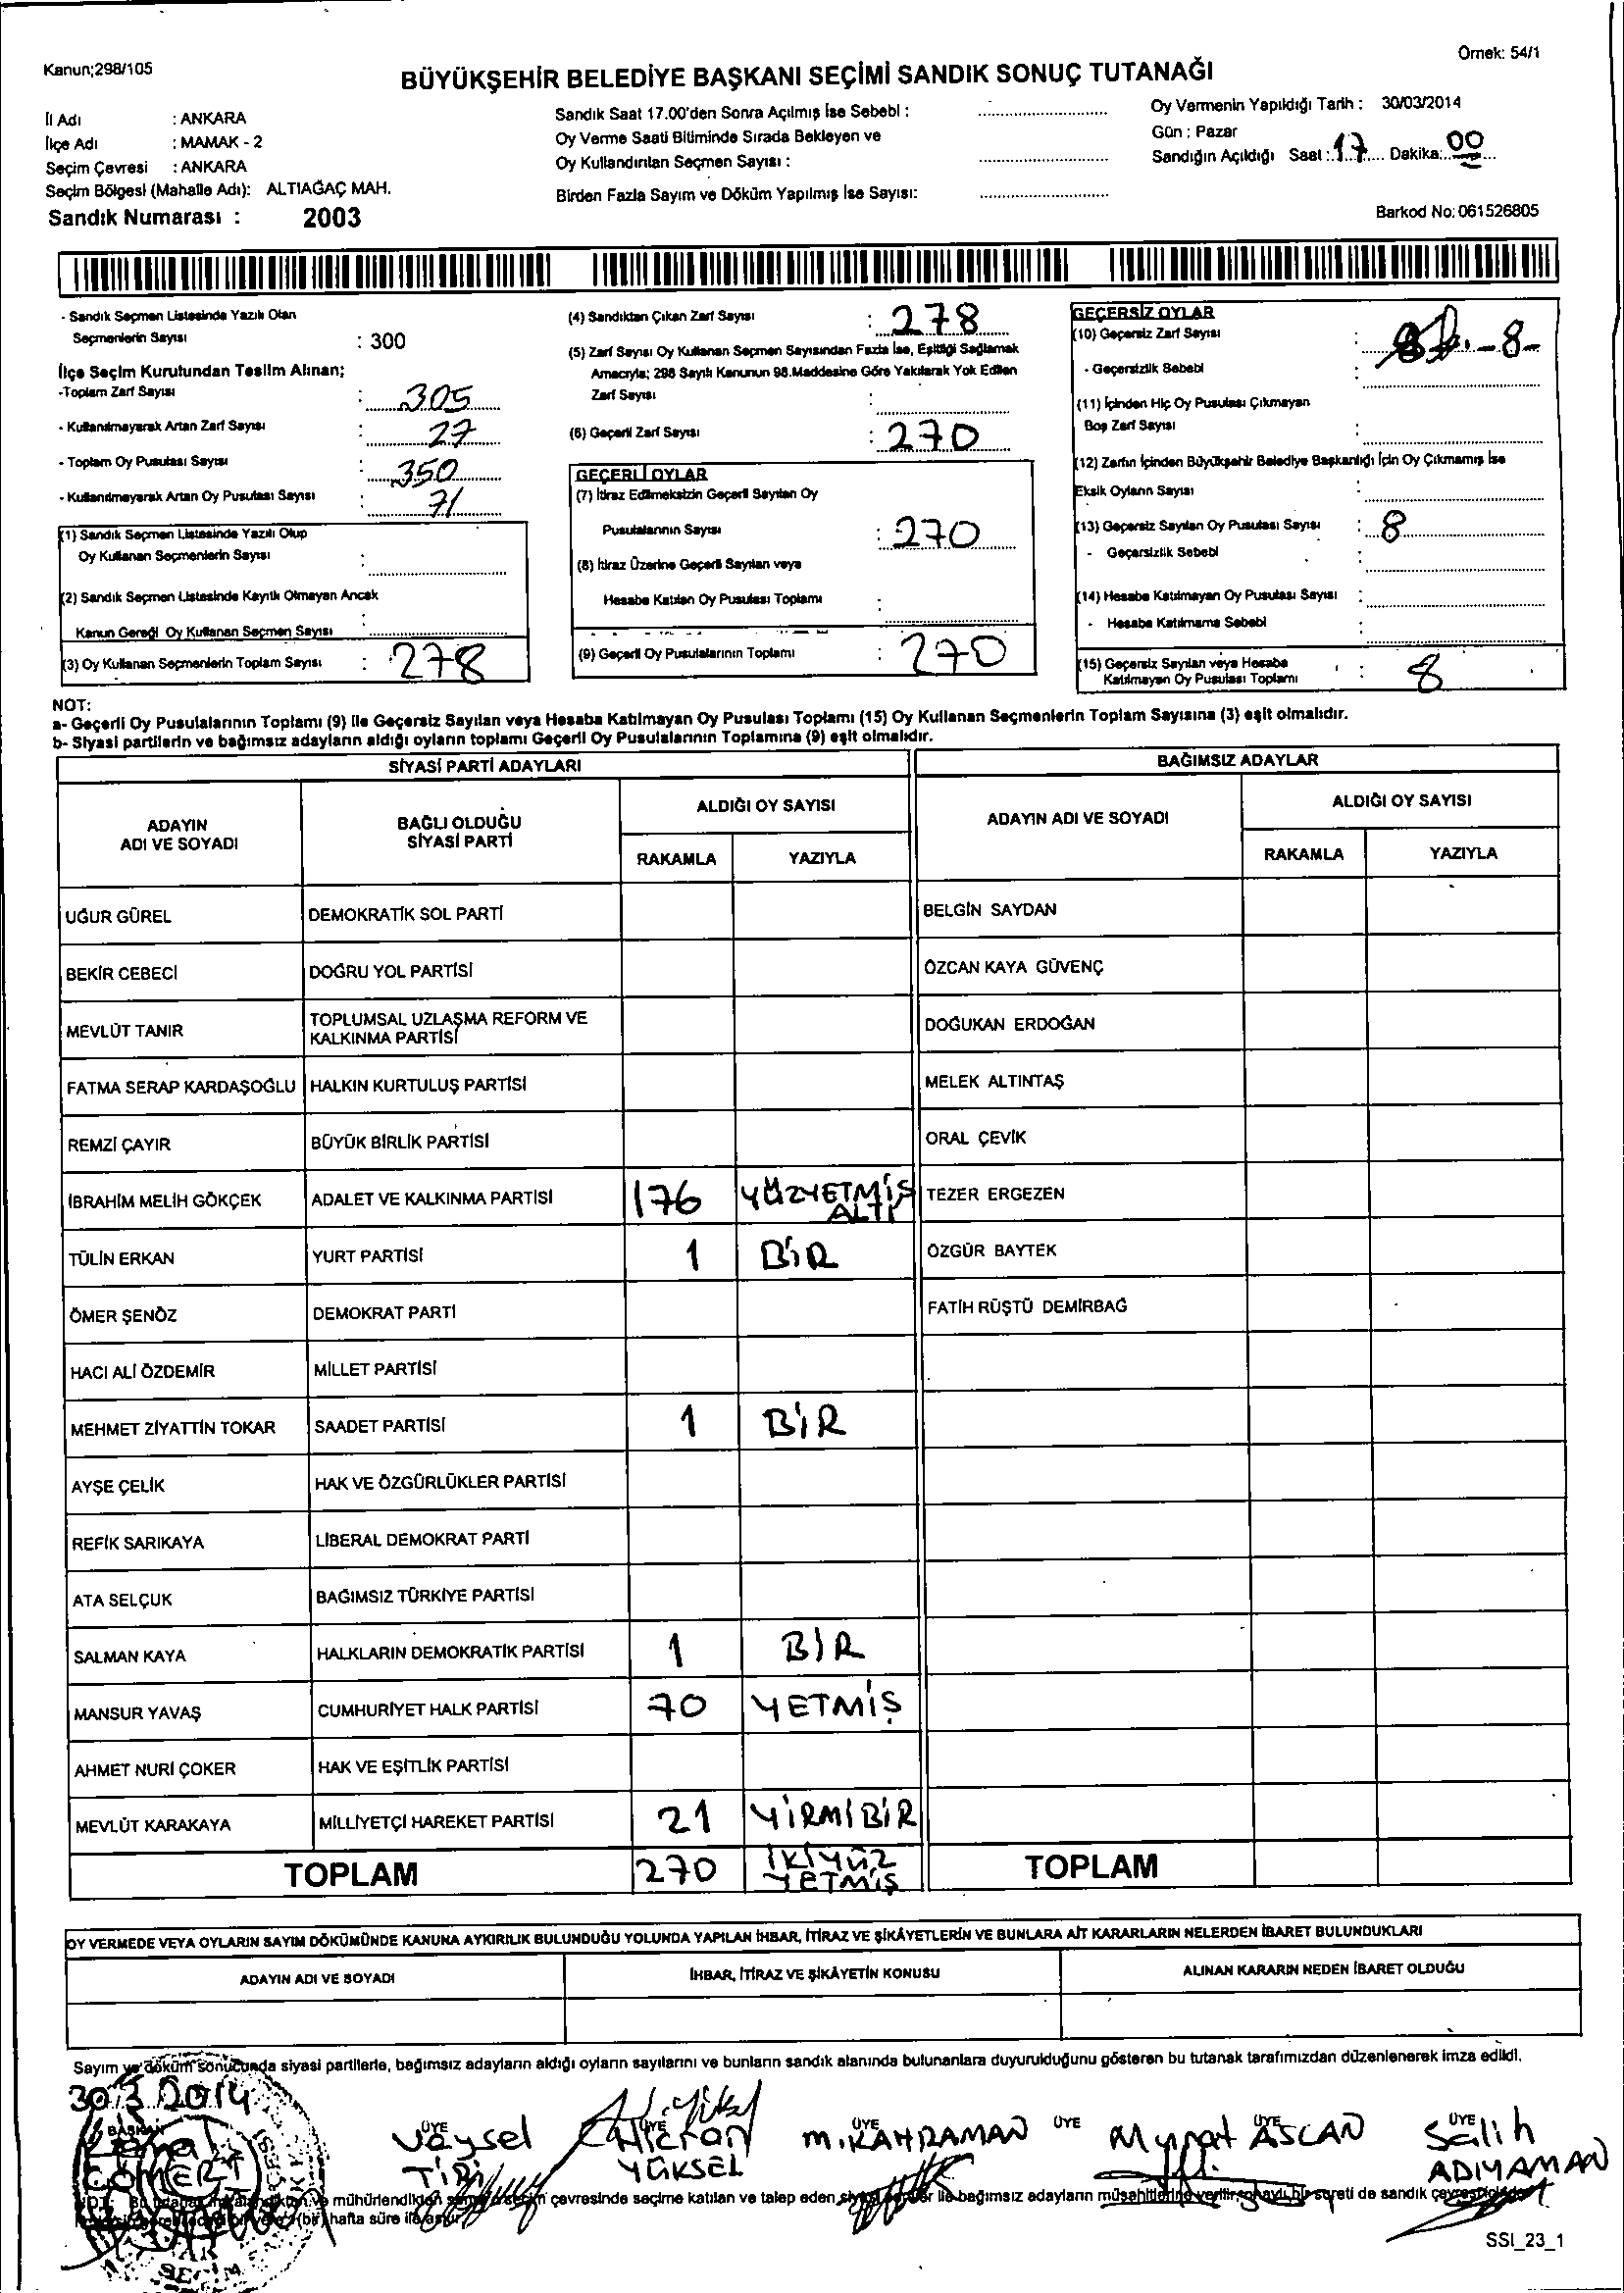 Kanun;298/105
Örnek: 54/1
BÜYÜKŞEHİR BELEDİYE BAŞKANI SEÇİMİ SANDIK SONUÇ TUTANAĞI
İl Adı : ANKARA
İlçe Adı : MAMAK - 2
Seçim Çevresi : ANKARA
Seçim Bölgesi (Mahalle Adı): ALTIAĞAÇ MAH.
Sandık Numarası : 2003
Sandık Saat 17.00'den Sonra Açılmış İse Sebebi :
Oy Verme Saati Bitiminde Sırada Bekleyen ve
Oy Kullandırılan Seçmen Sayısı :
Birden Fazla Sayım ve Döküm Yapılmış İse Sayısı:
Oy Vermenin Yapıldığı Tarih : 30/03/2014
Gün : Pazar
Sandığın Açıldığı Saat : 17 Dakika: 00
Barkod No: 061526805
- Sandık Seçmen Listesinde Yazılı Olan
Seçmenlerin Sayısı : 300
İlçe Seçim Kurulundan Teslim Alınan;
-Toplam Zarf Sayısı : 305
- Kullanılmayarak Artan Zarf Sayısı : 27
- Toplam Oy Pusulası Sayısı : 350
- Kullanılmayarak Artan Oy Pusulası Sayısı : 71
(1) Sandık Seçmen Listesinde Yazılı Olup
Oy Kullanan Seçmenlerin Sayısı :
(2) Sandık Seçmen Listesinde Kayıtlı Olmayan Ancak
Kanun Gereği Oy Kullanan Seçmen Sayısı
(3) Oy Kullanan Seçmenlerin Toplam Sayısı : 278
(4) Sandıktan Çıkan Zarf Sayısı : 278
(5) Zarf Sayısı Oy Kullanan Seçmen Sayısından Fazla İse, Eşitliği Sağlamak
Amacıyla; 298 Sayılı Kanunun 98.Maddesine Göre Yakılarak Yok Edilen
Zarf Sayısı :
(6) Geçerli Zarf Sayısı : 270
GEÇERLİ OYLAR
(7) İtiraz Edilmeksizin Geçerli Sayılan Oy
Pusulalarının Sayısı : 270
(8) İtiraz Üzerine Geçerli Sayılan veya
Hesaba Katılan Oy Pusulası Toplamı :
(9) Geçerli Oy Pusulalarının Toplamı : 270
GEÇERSİZ OYLAR
(10) Geçersiz Zarf Sayısı : -8-
- Geçersizlik Sebebi :
(11) İçinden Hiç Oy Pusulası Çıkmayan
Boş Zarf Sayısı :
(12) Zarfın İçinden Büyükşehir Belediye Başkanlığı İçin Oy Çıkmamış İse
Eksik Oyların Sayısı :
(13) Geçersiz Sayılan Oy Pusulası Sayısı : 8
- Geçersizlik Sebebi :
(14) Hesaba Katılmayan Oy Pusulası Sayısı :
- Hesaba Katılmama Sebebi :
(15) Geçersiz Sayılan veya Hesaba
Katılmayan Oy Pusulası Toplamı : 8
NOT:
a- Geçerli Oy Pusulalarının Toplamı (9) ile Geçersiz Sayılan veya Hesaba Katılmayan Oy Pusulası Toplamı (15) Oy Kullanan Seçmenlerin Toplam Sayısına (3) eşit olmalıdır.
b- Siyasi partilerin ve bağımsız adayların aldığı oyların toplamı Geçerli Oy Pusulalarının Toplamına (9) eşit olmalıdır.
SİYASİ PARTİ ADAYLARI BAĞIMSIZ ADAYLAR
ADAYIN ADI VE SOYADI BAĞLI OLDUĞU SİYASİ PARTİ ALDIĞI OY SAYISI ADAYIN ADI VE SOYADI ALDIĞI OY SAYISI
RAKAMLA YAZIYLA RAKAMLA YAZIYLA
UĞUR GÜREL DEMOKRATİK SOL PARTİ BELGİN SAYDAN
BEKİR CEBECİ DOĞRU YOL PARTİSİ ÖZCAN KAYA GÜVENÇ
MEVLÜT TANIR TOPLUMSAL UZLAŞMA REFORM VE KALKINMA PARTİSİ DOĞUKAN ERDOĞAN
FATMA SERAP KARDAŞOĞLU HALKIN KURTULUŞ PARTİSİ MELEK ALTINTAŞ
REMZİ ÇAYIR BÜYÜK BİRLİK PARTİSİ ORAL ÇEVİK
İBRAHİM MELİH GÖKÇEK ADALET VE KALKINMA PARTİSİ 176 YÜZYETMİŞ ALTI TEZER ERGEZEN
TÜLİN ERKAN YURT PARTİSİ 1 BİR ÖZGÜR BAYTEK
ÖMER ŞENÖZ DEMOKRAT PARTİ FATİH RÜŞTÜ DEMİRBAĞ
HACI ALİ ÖZDEMİR MİLLET PARTİSİ
MEHMET ZİYATTİN TOKAR SAADET PARTİSİ 1 BİR
AYŞE ÇELİK HAK VE ÖZGÜRLÜKLER PARTİSİ
REFİK SARIKAYA LİBERAL DEMOKRAT PARTİ
ATA SELÇUK BAĞIMSIZ TÜRKİYE PARTİSİ
SALMAN KAYA HALKLARIN DEMOKRATİK PARTİSİ 1 BİR
MANSUR YAVAŞ CUMHURİYET HALK PARTİSİ 70 YETMİŞ
AHMET NURİ ÇOKER HAK VE EŞİTLİK PARTİSİ
MEVLÜT KARAKAYA MİLLİYETÇİ HAREKET PARTİSİ 21 YİRMİBİR
TOPLAM 270 İKİYÜZ YETMİŞ TOPLAM
OY VERMEDE VEYA OYLARIN SAYIM DÖKÜMÜNDE KANUNA AYKIRILIK BULUNDUĞU YOLUNDA YAPILAN İHBAR, İTİRAZ VE ŞİKÂYETLERİN VE BUNLARA AİT KARARLARIN NELERDEN İBARET BULUNDUKLARI
ADAYIN ADI VE SOYADI İHBAR, İTİRAZ VE ŞİKÂYETİN KONUSU ALINAN KARARIN NEDEN İBARET OLDUĞU
Sayım ve döküm sonucunda siyasi partilerle, bağımsız adayların aldığı oyların sayılarını ve bunların sandık alanında bulunanlara duyurulduğunu gösteren bu tutanak tarafımızdan düzenlenerek imza edildi.
30.3.2014
BAŞKAN ÜYE ÜYE ÜYE ÜYE ÜYE ÜYE
Kemal Veysel Hicran M.KAHRAMAN Murat ASLAN Salih
CÖMERT YÜKSEL ADIYAMAN
mühürlendikten çevresinde seçime katılan ve talep eden ile bağımsız adayların müşahitlerine sureti de sandık
(bir) hafta süre ile
SSI_23_1